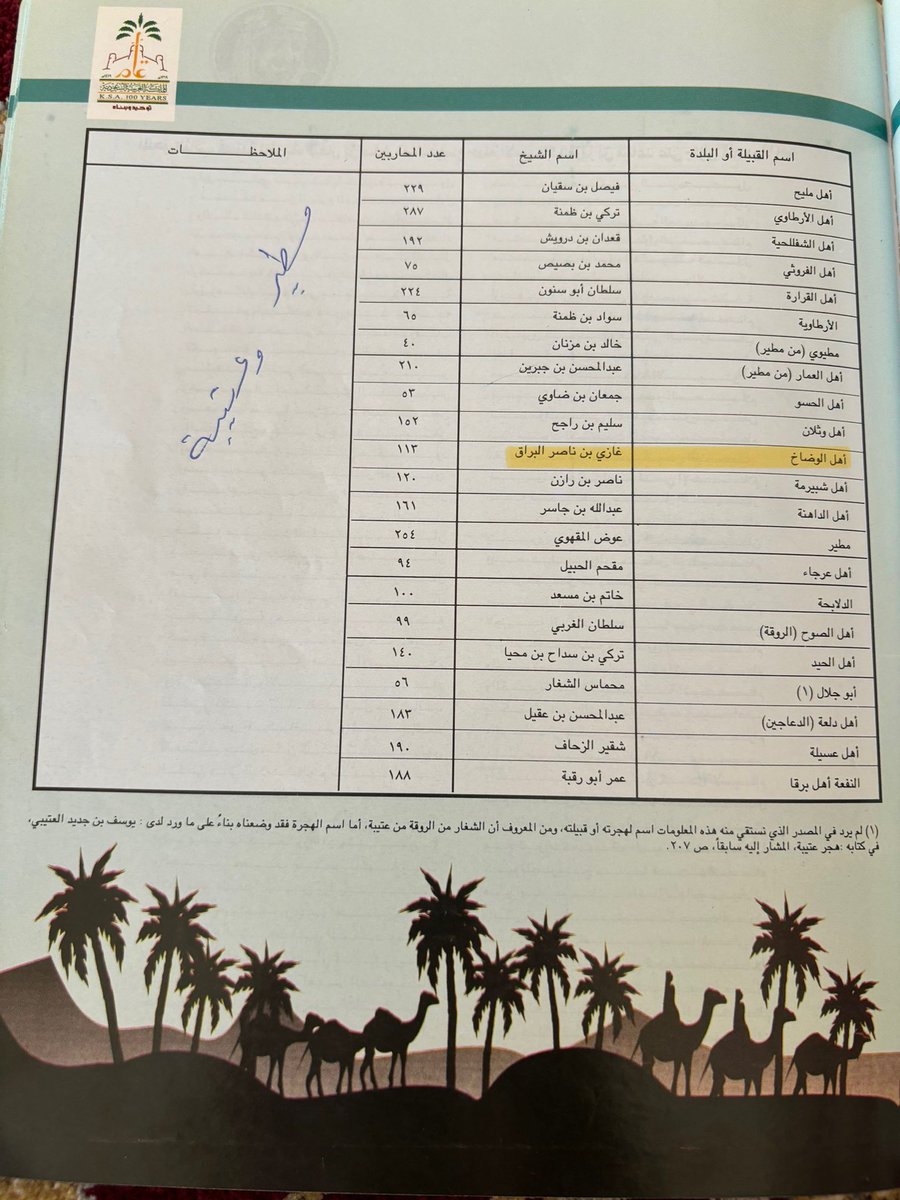 عام
المملكة العربية السعودية
K.S.A. 100 YEARS
توحيد وبناء
اسم القبيلة أو البلدة اسم الشيخ عدد المحاربين الملاحظـــــــــات
أهل مليح فيصل بن سقيان ٢٢٩
أهل الأرطاوي تركي بن ظمنة ٢٨٧
أهل الشفللحية قعدان بن درويش ١٩٢
أهل الفروثي محمد بن بصيص ٧٥
أهل القرارة سلطان أبو سنون ٢٢٤
الأرطاوية سواد بن ظمنة ٦٥
مطيوي (من مطير) خالد بن مزنان ٤٠
أهل العمار (من مطير) عبدالمحسن بن جبرين ٢١٠
أهل الحسو جمعان بن ضاوي ٥٣
أهل وثلان سليم بن راجح ١٥٢
أهل الوضاخ غازي بن ناصر البراق ١١٣
أهل شبيرمة ناصر بن رازن ١٢٠
أهل الداهنة عبدالله بن جاسر ١٦١
مطير عوض المقهوي ٢٥٤
أهل عرجاء مقحم الحبيل ٩٤
الدلابحة خاتم بن مسعد ١٠٠
أهل الصوح (الروقة) سلطان الغربي ٩٩
أهل الحيد تركي بن سداح بن محيا ١٤٠
أبو جلال (١) محماس الشغار ٥٦
أهل دلعة (الدعاجين) عبدالمحسن بن عقيل ١٨٣
أهل عسيلة شقير الزحاف ١٩٠
النفعة أهل برقا عمر أبو رقبة ١٨٨
مطير
وعتيبة
(١) لم يرد في المصدر الذي نستقي منه هذه المعلومات اسم لهجرته أو قبيلته، ومن المعروف أن الشغار من الروقة من عتيبة، أما اسم الهجرة فقد وضعناه بناءً على ما ورد لدى : يوسف بن جديد العتيبي،
في كتابه :هجر عتيبة، المشار إليه سابقاً، ص ٢٠٧.